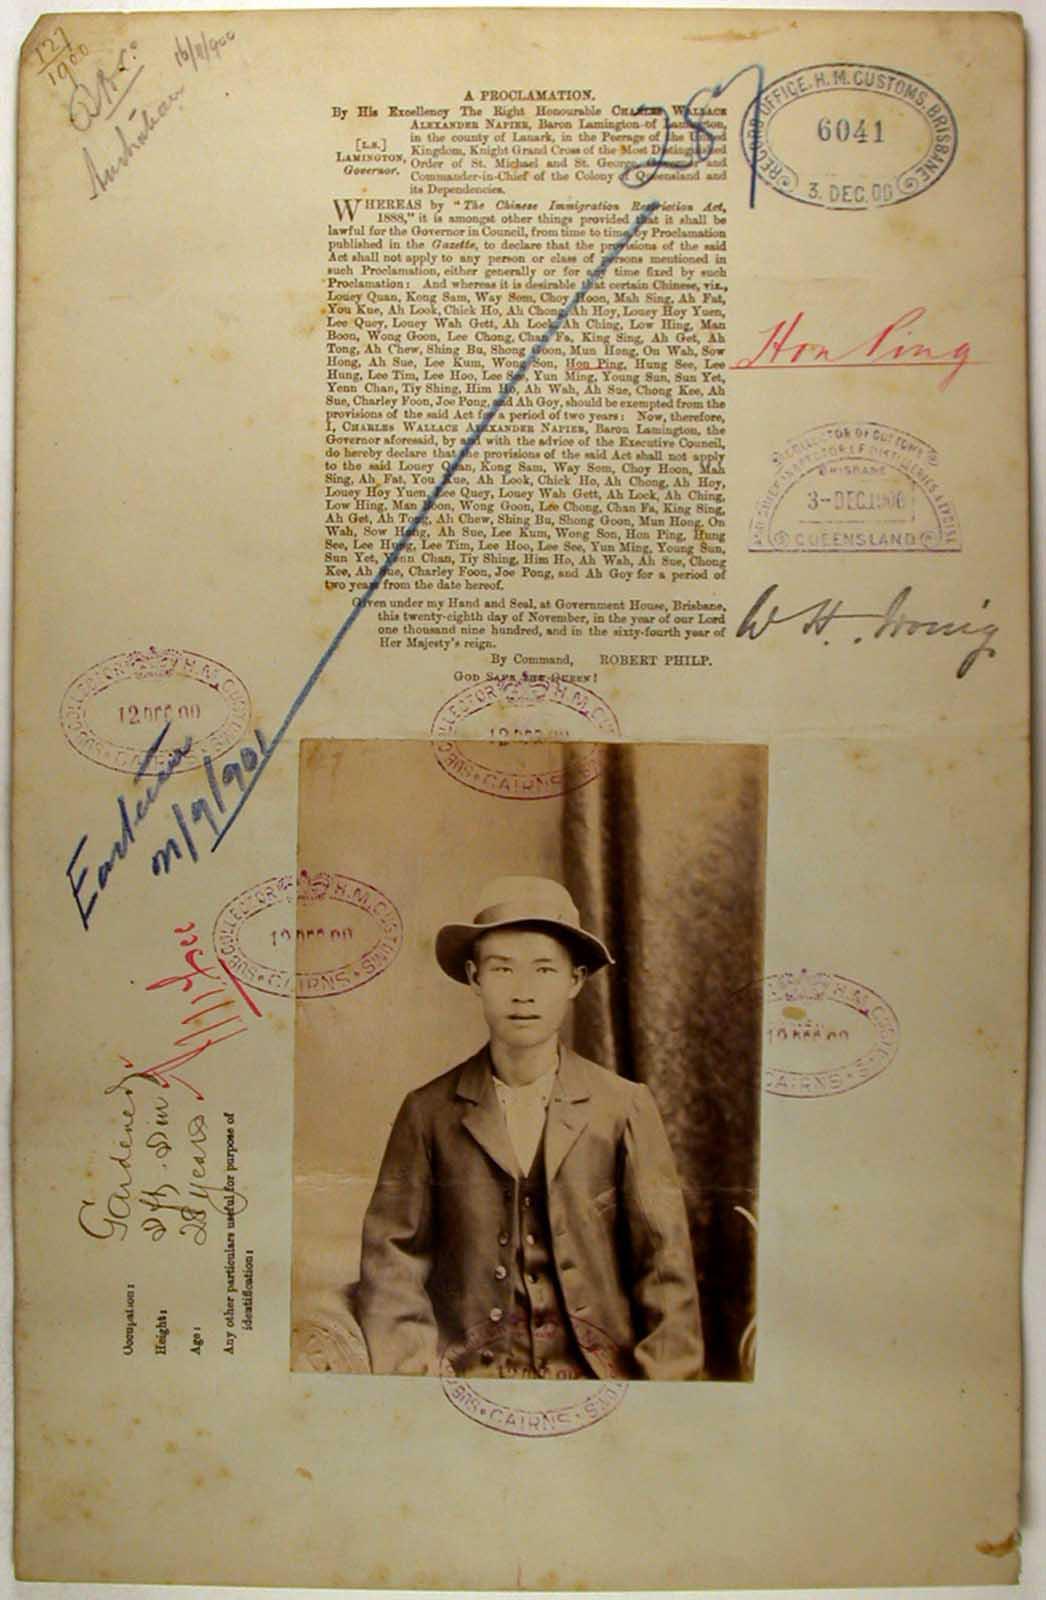 127
1900
16/11/900
Australian
257
A PROCLAMATION.
By His Excellency The Right Honourable CHARLES WALLACE
ALEXANDER NAPIER, Baron Lamington of Lamington,
in the county of Lanark, in the Peerage of the United
Kingdom, Knight Grand Cross of the Most Distinguished
Order of St. Michael and St. George, Governor and
Commander-in-Chief of the Colony of Queensland and
its Dependencies.
[L.S.]
LAMINGTON,
Governor.
WHEREAS by "The Chinese Immigration Restriction Act,
1888," it is amongst other things provided that it shall be
lawful for the Governor in Council, from time to time, by Proclamation
published in the Gazette, to declare that the provisions of the said
Act shall not apply to any person or class of persons mentioned in
such Proclamation, either generally or for any time fixed by such
Proclamation: And whereas it is desirable that certain Chinese, viz.,
Louey Quan, Kong Sam, Way Som, Choy Hoon, Mah Sing, Ah Fat,
You Kue, Ah Look, Chick Ho, Ah Chong, Ah Hoy, Louey Hoy Yuen,
Lee Quey, Louey Wah Gett, Ah Lock, Ah Ching, Low Hing, Man
Boon, Wong Goon, Lee Chong, Chan Fa, King Sing, Ah Get, Ah
Tong, Ah Chew, Shing Bu, Shong Goon, Mun Hong, On Wah, Sow
Hong, Ah Sue, Lee Kum, Wong Son, Hon Ping, Hung See, Lee
Hung, Lee Tim, Lee Hoo, Lee See, Yun Ming, Young Sun, Sun Yet,
Yenn Chan, Tiy Shing, Him Ho, Ah Wah, Ah Sue, Chong Kee, Ah
Sue, Charley Foon, Joe Pong, and Ah Goy, should be exempted from the
provisions of the said Act for a period of two years: Now, therefore,
I, CHARLES WALLACE ALEXANDER NAPIER, Baron Lamington, the
Governor aforesaid, by and with the advice of the Executive Council,
do hereby declare that the provisions of the said Act shall not apply
to the said Louey Quan, Kong Sam, Way Som, Choy Hoon, Mah
Sing, Ah Fat, You Kue, Ah Look, Chick Ho, Ah Chong, Ah Hoy,
Louey Hoy Yuen, Lee Quey, Louey Wah Gett, Ah Lock, Ah Ching,
Low Hing, Man Boon, Wong Goon, Lee Chong, Chan Fa, King Sing,
Ah Get, Ah Tong, Ah Chew, Shing Bu, Shong Goon, Mun Hong, On
Wah, Sow Hong, Ah Sue, Lee Kum, Wong Son, Hon Ping, Hung
See, Lee Hung, Lee Tim, Lee Hoo, Lee See, Yun Ming, Young Sun,
Sun Yet, Yenn Chan, Tiy Shing, Him Ho, Ah Wah, Ah Sue, Chong
Kee, Ah Sue, Charley Foon, Joe Pong, and Ah Goy for a period of
two years from the date hereof.
Given under my Hand and Seal, at Government House, Brisbane,
this twenty-eighth day of November, in the year of our Lord
one thousand nine hundred, and in the sixty-fourth year of
Her Majesty's reign.
By Command, ROBERT PHILP.
GOD SAVE THE QUEEN!
RECORD OFFICE, H. M. CUSTOMS, BRISBANE
6041
3. DEC. 00
Hon Ping
COLLECTOR OF CUSTOMS
BRISBANE
3-DEC.1900
QUEENSLAND
W H.
SUB COLLECTOR H.M. CUSTOMS
12 DEC 00
CAIRNS
SUB COLLECTOR H.M. CUSTOMS
12 DEC 00
CAIRNS
Eastern
21/9/901
SUB COLLECTOR H.M. CUSTOMS
12 DEC 00
CAIRNS
H.M. CUSTOMS
12 DEC 00
CAIRNS
Occupation: Gardener
Height: 5ft
Age: 28 years
Any other particulars useful for purpose of
identification:
12 DEC 00
SUB CAIRNS